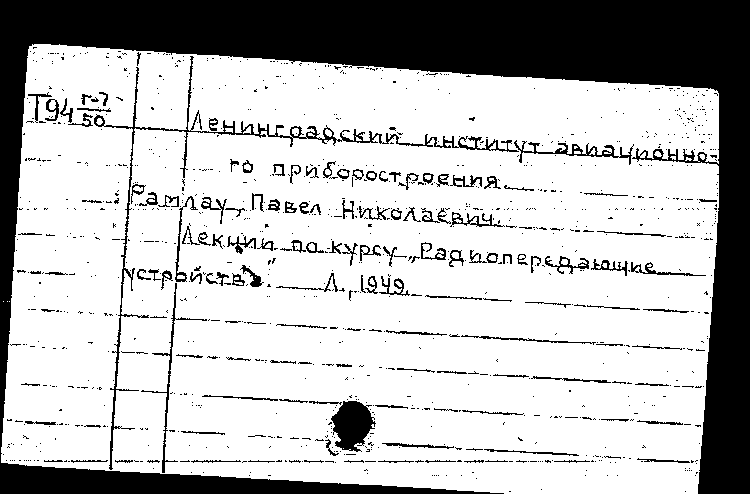 Т94 Г-7/50
Ленинградский институт авиационно-
го приборостроения.
Рамлау, Павел Николаевич.
Лекции по курсу „Радиопередающие
устройства." Л., 1949.